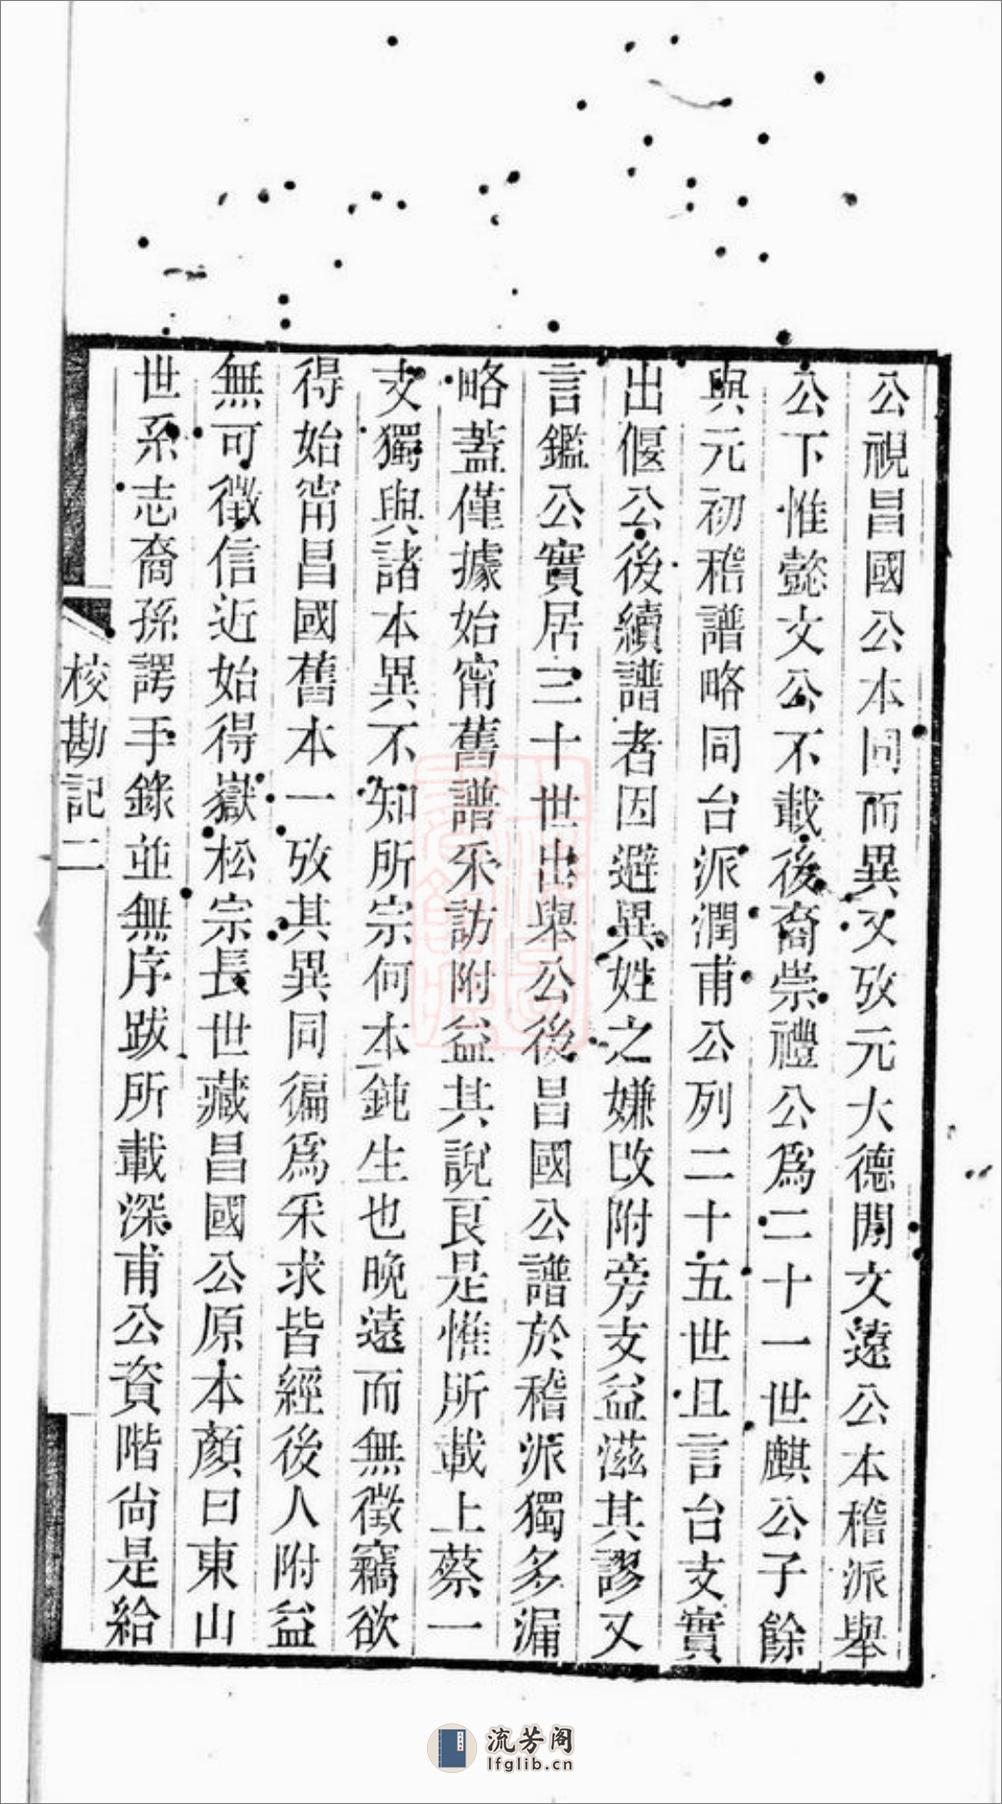 公視昌國公本同而異又攷元大德閒文遠公本稽派舉
公下惟懿文公不載後裔崇禮公爲二十一世麒公子餘
與元初稽譜略同台派潤甫公列二十五世且言台支實
出偃公後續譜者因避異姓之嫌改附旁支益滋其謬又
言鑑公實居三十世出舉公後昌國公譜於稽派獨多漏
略蓋僅據始甯舊譜采訪附益其說良是惟所載上蔡一
支獨與諸本異不知所宗何本鈍生也晚遠而無徵竊欲
得始甯昌國舊本一攷其異同徧爲采求皆經後人附益
無可徵信近始得嶽松宗長世藏昌國公原本顏曰東山
世系志裔孫諤手錄並無序跋所載深甫公資階尙是給
校勘記二
流芳阁
lfglib.cn